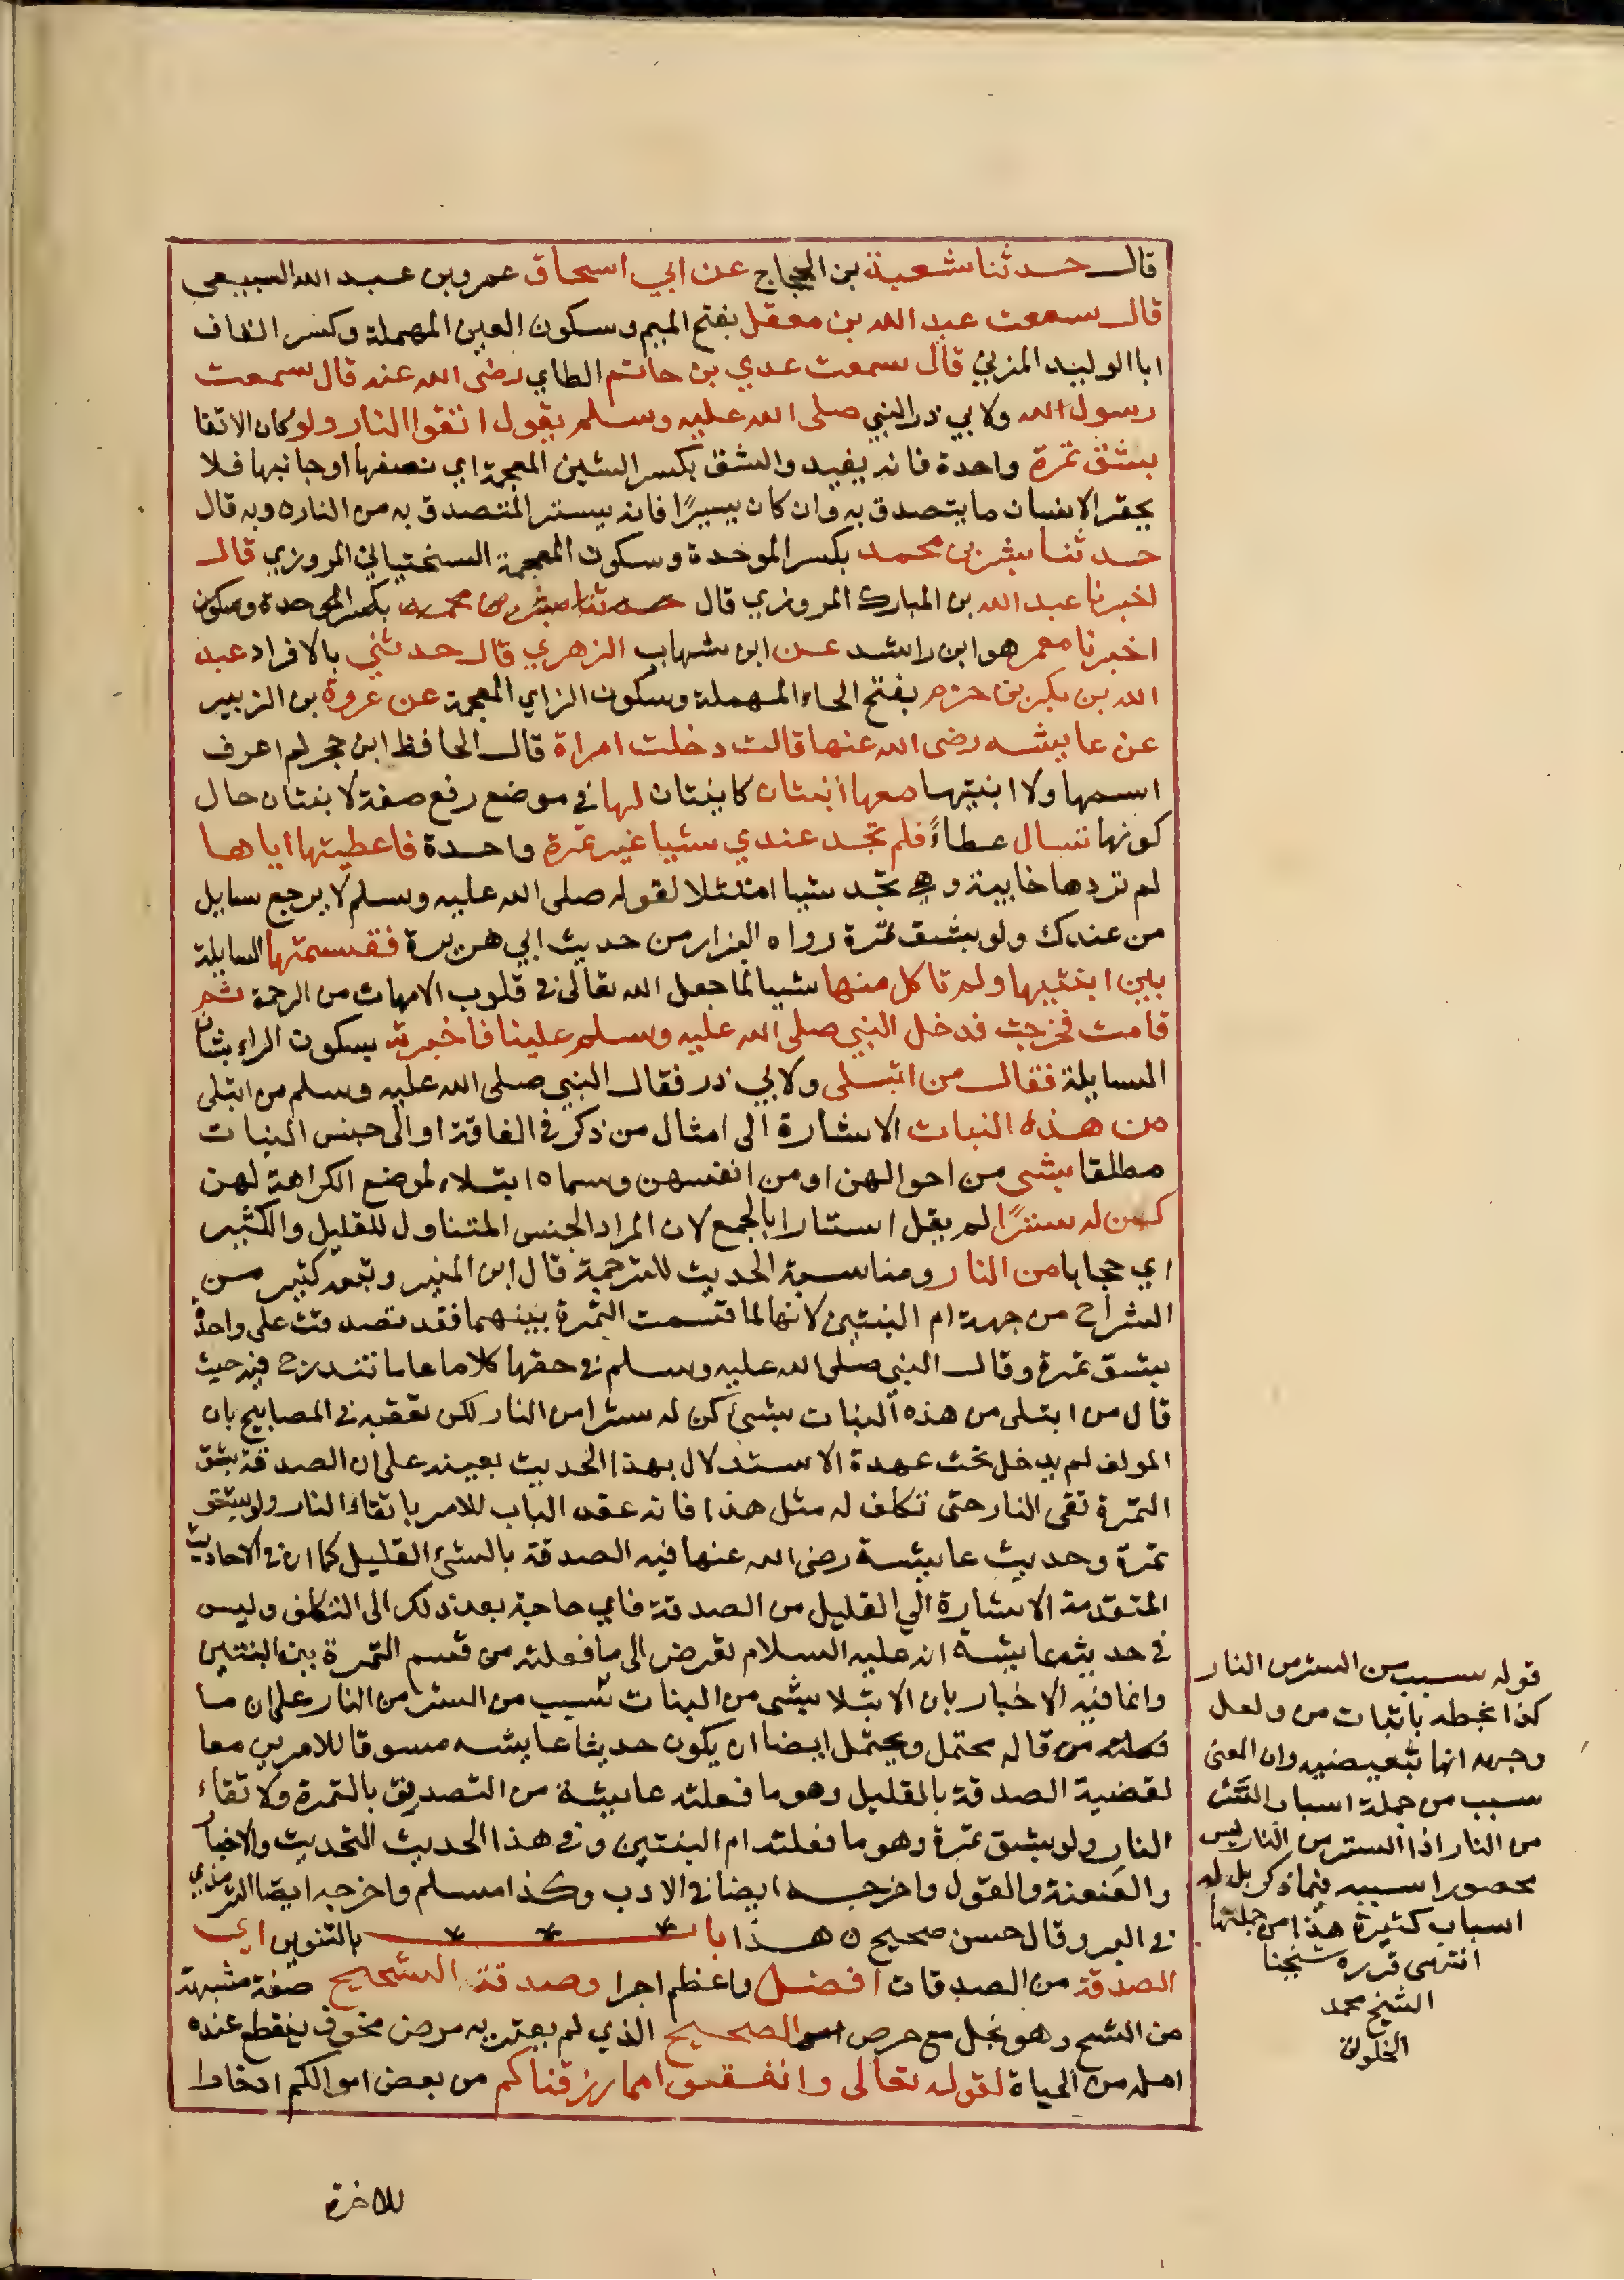 قال حدثنا شعبة بن الحجاج عن ابي اسحاق عمرو بن عبد الله السبيعى
قال سمعت عبد الله بن معقل بفتح الميم وسكون العين المهملة وكسر القاف
ابا الوليد المزني قال سمعت عدي بن حاتم الطاي رضى الله عنه قال سمعت
رسول الله ولابي ذر النبي صلى الله عليه وسلم يقول اتقوا النار ولو كان الاتقا
بشق تمرة واحدة فانه يفيد والشق بكسر الشين المعجمة اي نصفها او جانبها فلا
يحقر الانسان ما يتصدق به وان كان يسيرًا فانه يستر المتصدق به من النار ه وبه قال
حدثنا بشر بن محمد بكسر الموحدة وسكون المعجمة السختياني المروزي قال
اخبرنا عبد الله بن المبارك المروزي قال حدثنا بشر بن محمد بكسر الموحدة وسكون
اخبرنا معمر هو ابن راشد عن ابن شهاب الزهري قال حدثني بالافراد عبد
الله بن بكر بن حزم بفتح الحاء المهملة وسكون الزاي المعجمة عن عروة بن الزبير
عن عايشه رضى الله عنها قالت دخلت امراة قال الحافظ ابن حجر لم اعرف
اسمها ولا ابنتيها معها ابنتان كاينتان لها في موضع رفع صفة لابنتان حال
كونها تسال عطاءً فلم تجد عندي شيا غير تمرة واحدة فاعطيتها اياها
لم تردها خايبة وهي تجد شيا امتثلا لقوله صلى الله عليه وسلم لا يرجع سايل
من عندك ولو بشق تمرة رواه البزار من حديث ابي هريرة فقسمتها السايلة
بين ابنتيها ولم تاكل منها شيا لما جعل الله تعالى في قلوب الامهات من الرحمة ثم
قامت فخرجت فدخل النبي صلى الله عليه وسلم علينا فاخبرته بسكون الراء بشان
السايلة فقال من ابتلى ولابي ذر فقال النبي صلى الله عليه وسلم من ابتلى
من هذه البنات الاشارة الى امثال من ذكر في الفاقة او الى جنس البنات
مطلقا بشى من احوالهن او من انفسهن وسماه ابتلاء لموضع الكراهة لهن
كن له سترًا لم يقل استارا بالجمع لان المراد الجنس المتناول للقليل والكثير
اي حجابا من النار ومناسبة الحديث للترجمة قال ابن المنير وتبعه كثير من
الشراح من جهة ام البنتين لانها لما قسمت التمرة بينهما فقد تصدقت على واحدة
بشق تمرة وقال النبي صلى الله عليه وسلم في حقها كلاما عاما تندرج فيه حيث
قال من ابتلى من هذه البنات بشئ كن له سترا من النار لكن تعقبه في المصابيح بان
المولف لم يدخل تحت عهدة الاستدلال بهذا الحديث بعينه على ان الصدقة بشق
التمرة تقى النار حتى نتكلف له مثل هذا فانه عقد الباب للامر باتقاء النار ولو بشق
تمرة وحديث عايشة رضى الله عنها فيه الصدقة بالشئ القليل كما ان في الاحاديث
المتقدمة الاشارة الي القليل من الصدقة فاي حاجة بعد ذلك الى التكلف وليس
في حديث عايشة انه عليه السلام تعرض الى ما فعلته من قسم التمرة بين البنتين
وانما فيه الاخبار بان الابتلا بشى من البنات سبب من الستر من النار على ان ما
قاله محتمل ويحتمل ايضا ان يكون حديث عايشه مسوقا للامرين معا
لقضية الصدقة بالقليل وهو ما فعلته عايشة من التصديق بالتمرة ولاتقاء
النار ولو بشق تمرة وهو ما فعلته ام البنتين وفي هذا الحديث التحديث والاخبار
والعنعنة والقول واخرجه ايضا في الادب وكذا مسلم واخرجه ايضا الترمذي
في البر وقال حسن صحيح ه هذا باب بالتنوين اى
الصدقة من الصدقات افضل واعظم اجرا وصدقة الشحيح صفة مشبهة
من الشح وهو بخل مع حرص الصحيح الذي لم يعتريه مرض مخوف ينقطع عنده
امله من الحياة لقوله تعالى وانفقوا مما رزقناكم من بعض اموالكم ادخارا
للاخرة
قوله سبب من الستر من النار
كذا بخطه باثبات من ولعل
وجهه انها تبعيضيه وان المعنى
سبب من جملة اسباب الستر
من النار اذا الستر من النار ليس
محصورا سببه فيما ذكر بل له
اسباب كثيرة هذا من جملتها
انتهى قرره شيخنا
الشيخ محمد
الخلوتى